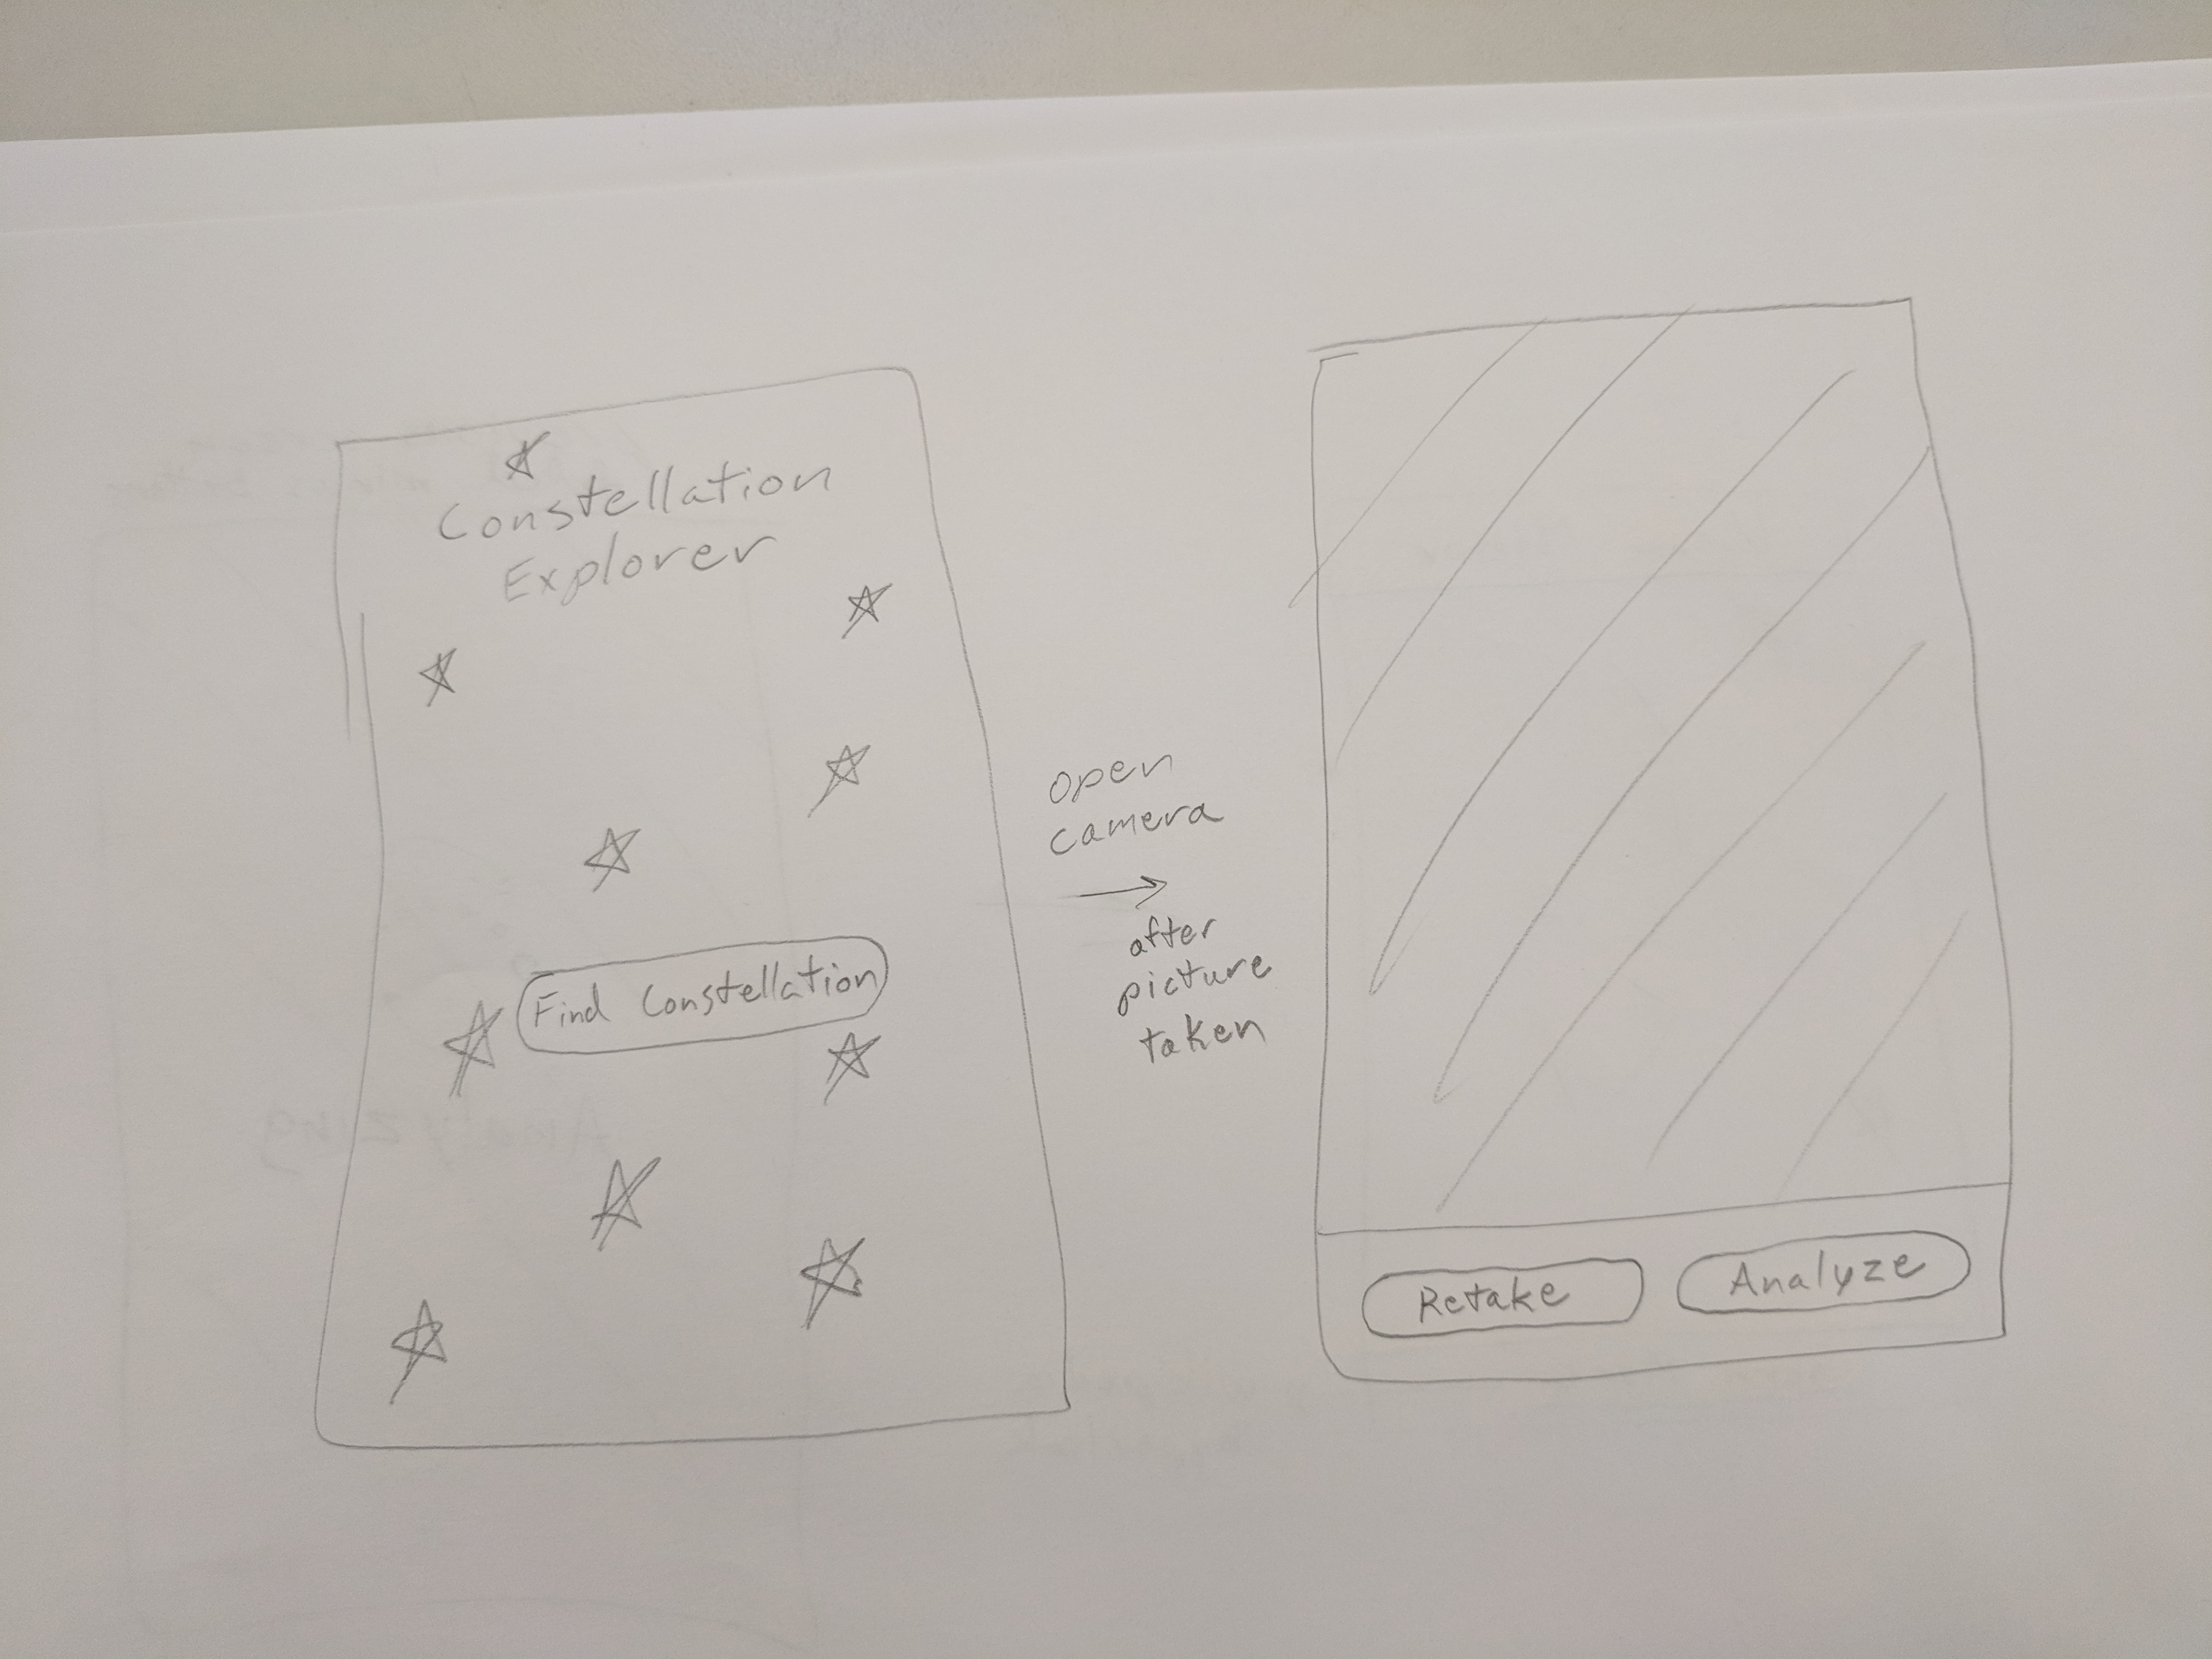 Constellation
Explorer
Find Constellation
open
camera
after
picture
taken
Retake
Analyze
Analyzing